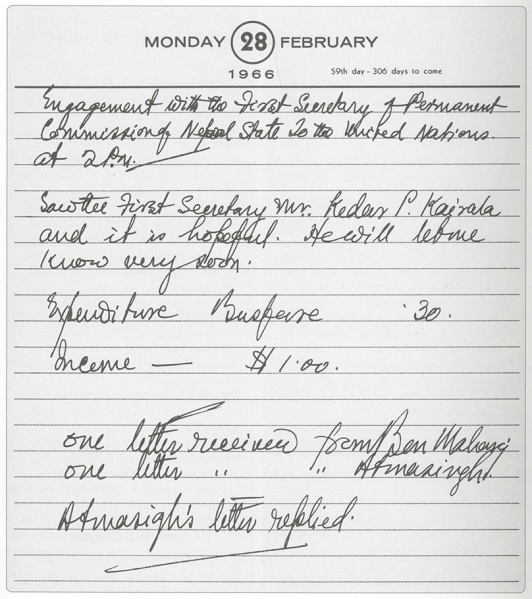 MONDAY 28 FEBRUARY
1966
59th day - 306 days to come
Engagement with the First Secretary of Permanent
Commission of Nepal State To the United Nations.
at 2 P.m.
Saw the First Secretary Mr. Kedar P. Kairala
and it is hopeful. He will let me
know very soon.
Expenditure Busfare .30.
Income — $ 1.00.
one letter received from Ben Maharaj
one letter ,, ,, Atmasingh.
Atmasigh's letter replied.